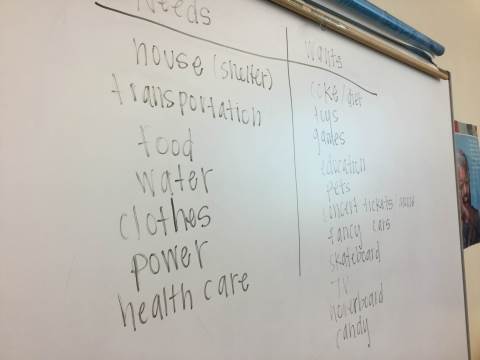 Needs
house (shelter)
transportation
food
water
clothes
power
health care
Wants
coke/diet
toys
games
education
pets
concert tickets/
fancy cars
skateboard
TV
hoverboard
candy